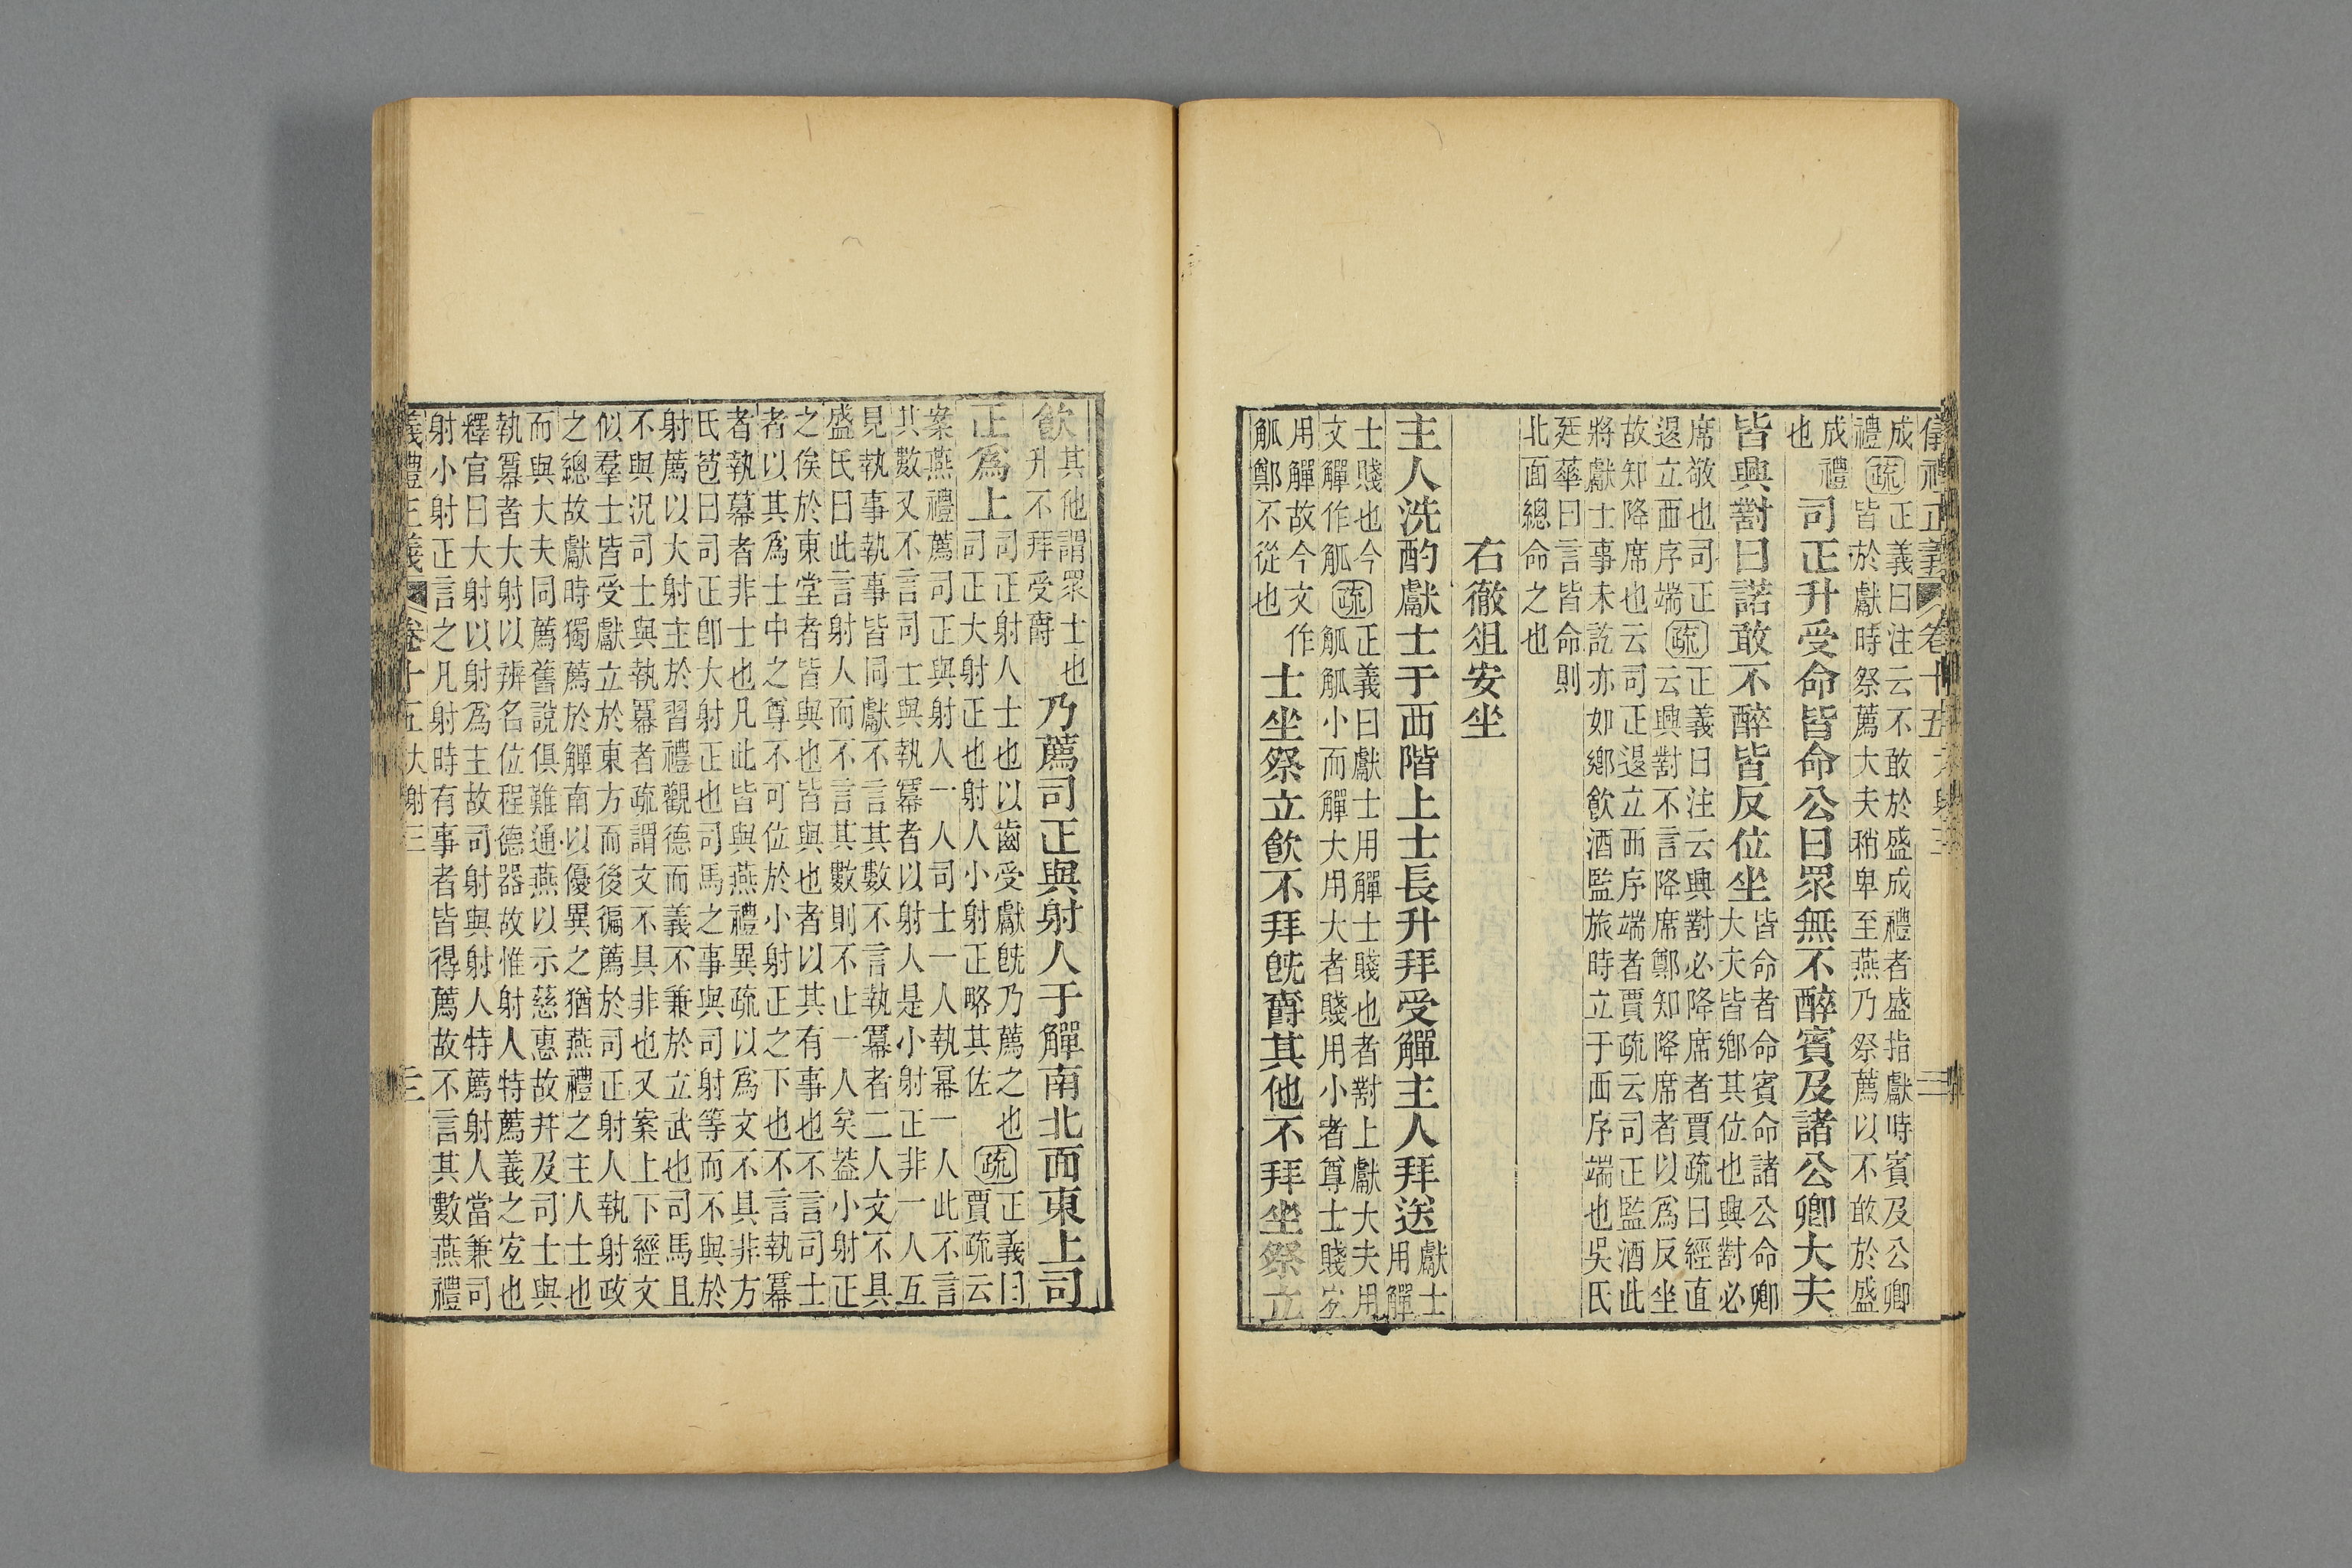 儀禮正義　卷十五　大射三　二
成[疏]正義曰注云不敢於盛成禮者盛指獻時賓及公卿
禮　皆於獻時祭薦大夫稍卑至燕乃祭薦以不敢於盛
成禮
也
司正升受命皆命公曰眾無不醉賓及諸公卿大夫
皆興對曰諾敢不醉皆反位坐
皆命者命賓命諸公命卿
大夫皆鄉其位也興對必
席敬也司正
退立西序端
[疏]正義曰注云興對必降席者賈疏曰經直
云興對不言降席鄭知降席者以爲反坐
故知降席也云司正退立西序端者賈疏云司正監酒此
將獻士事未訖亦如鄉飲酒監旅時立于西序端也吳氏
廷華曰言皆命則
北面總命之也
右徹俎安坐
主人洗酌獻士于西階上士長升拜受觶主人拜送
獻士
用觶
士賤也今
文觶作觚
[疏]正義曰獻士用觶士賤也者對上獻大夫用
觚觚小而觶大用大者賤用小者尊士賤㝎
用觶故今文作
觚鄭不從也
士坐祭立飲不拜既爵其他不拜坐祭立
飲
其他謂眾士也
升不拜受爵
乃薦司正與射人于觶南北面東上司
正爲上
司正射人士也以齒受獻既乃薦之也
司正大射正也射人小射正略其佐
[疏]正義曰
賈疏云
案燕禮薦司正與射人一人司士一人執冪一人此不言
其數又不言司士與執冪者以射人是小射正非一人互
見執事執事皆同獻不言其數不言執冪者二人文不具
盛氏曰此言射人而不言其數則不止一人矣葢小射正
之俟於東堂者皆與也皆與也者以其有事也不言司士
者以其爲士中之尊不可位於小射正之下也不言執冪
者執冪者非士也凡此皆與燕禮異疏以爲文不具非方
氏苞曰司正卽大射正也司馬之事與司射等而不與於
射薦以大射主於習禮觀德而義不兼於立武也司馬且
不與況司士與執冪者疏謂文不具非也又案上下經文
似羣士皆受獻立於東方而後徧薦於司正射人執射政
之總故獻時獨薦於觶南以優異之猶燕禮之主人士也
而與大夫同薦舊說俱難通燕以示慈惠故并及司士與
執冪者大射以辨名位程德器故惟射人特薦義之㝎也
釋官曰大射以射爲主故司射與射人特薦射人當兼司
射小射正言之凡射時有事者皆得薦故不言其數燕禮
儀禮正義　卷十五　大射三　三